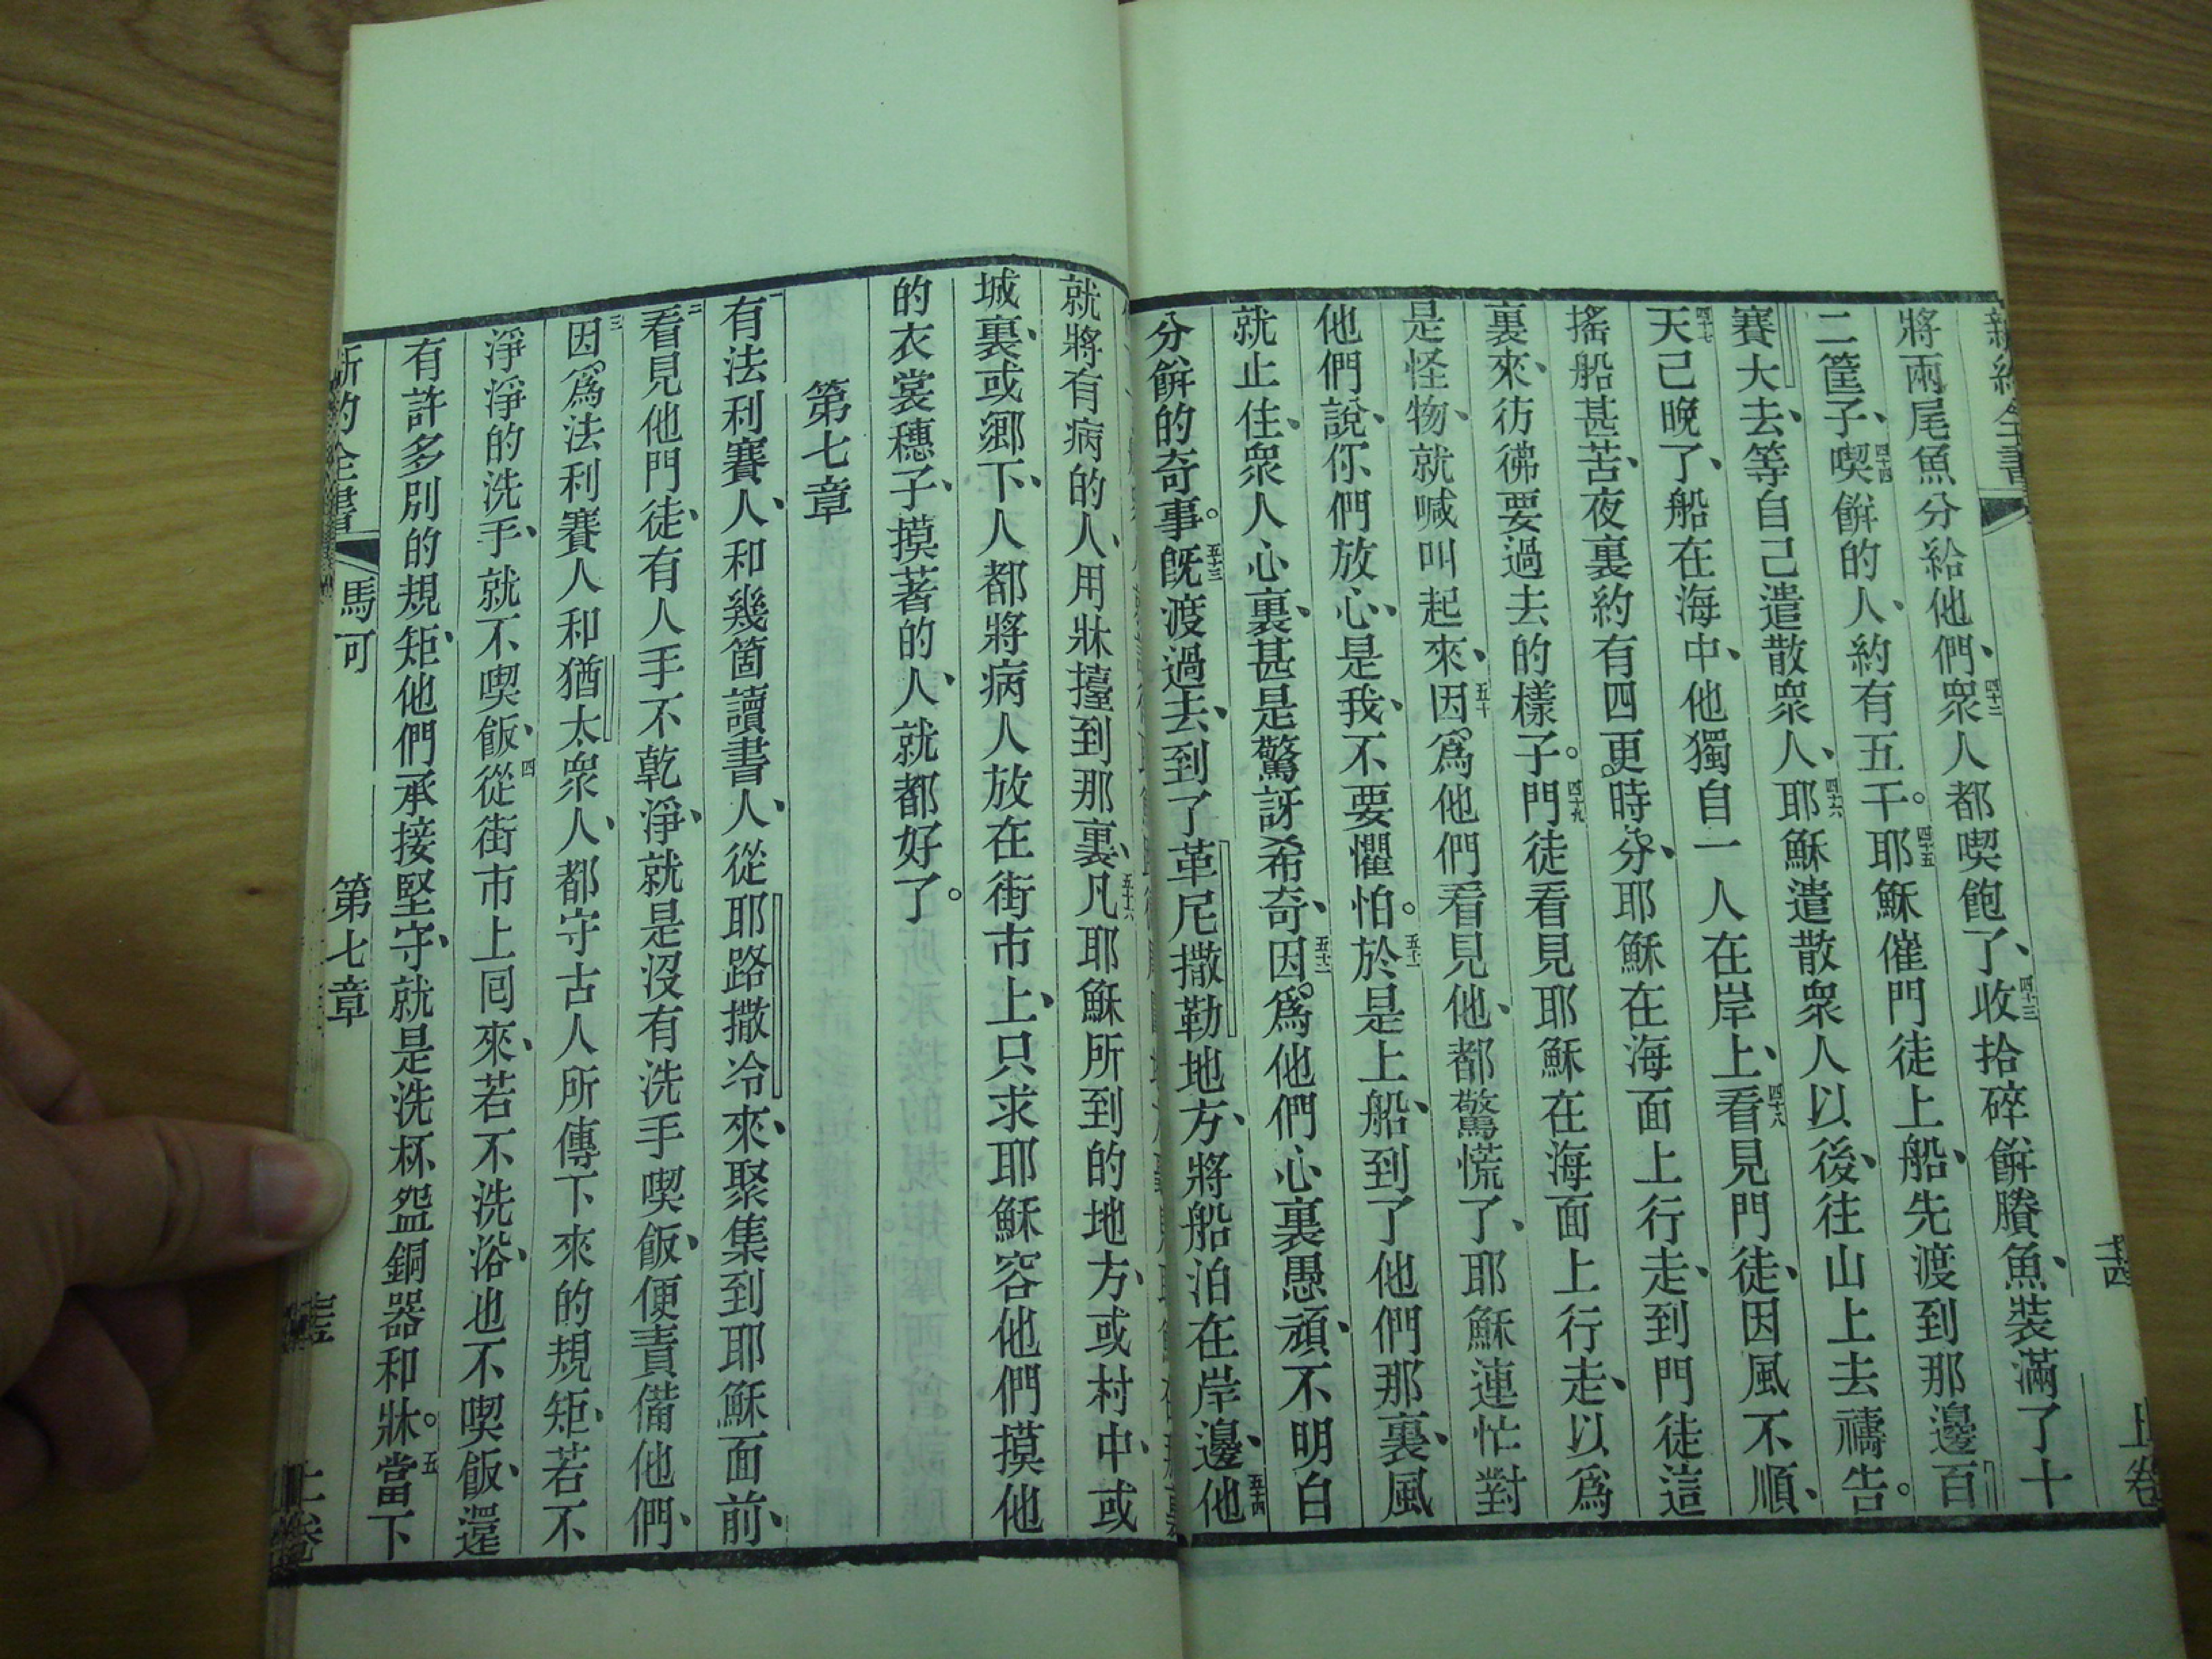 新約全書
十四
上卷
將兩尾魚分給他們、四十二衆人都喫飽了、四十三收拾碎餅賸魚、裝滿了十
二筐子、四十四喫餅的人、約有五千。四十五耶穌催門徒上船、先渡到那邊百
賽大去、等自己遣散衆人、四十六耶穌遣散衆人以後、往山上去禱告。
四十七天已晚了、船在海中、他獨自一人在岸上、四十八看見門徒、因風不順、
搖船甚苦、夜裏約有四更時分、耶穌在海面上行走、到門徒這
裏來、彷彿要過去的樣子。四十九門徒看見耶穌在海面上行走、以爲
是怪物、就喊叫起來、五十因爲他們看見他、都驚慌了、耶穌連忙對
他們說、你們放心、是我、不要懼怕。五十一於是上船、到了他們那裏、風
就止住、衆人心裏、甚是驚訝希奇、五十二因爲他們心裏愚頑、不明白
分餅的奇事。五十三旣渡過去、到了革尼撒勒地方、將船泊在岸邊、五十四他
就將有病的人、用牀擡到那裏、五十六凡耶穌所到的地方、或村中、或
城裏、或鄉下、人都將病人放在街市上、只求耶穌容他們摸他
的衣裳穗子、摸著的人、就都好了。
第七章
一有法利賽人、和幾箇讀書人、從耶路撒冷來、聚集到耶穌面前、
二看見他門徒、有人手不乾淨、就是沒有洗手喫飯、便責備他們、
三因爲法利賽人和猶太衆人、都守古人所傳下來的規矩、若不
淨淨的洗手、就不喫飯、四從街市上囘來、若不洗浴、也不喫飯、還
有許多別的規矩、他們承接堅守、就是洗杯盌銅器和牀。五當下
新約全書
馬可
第七章
上卷